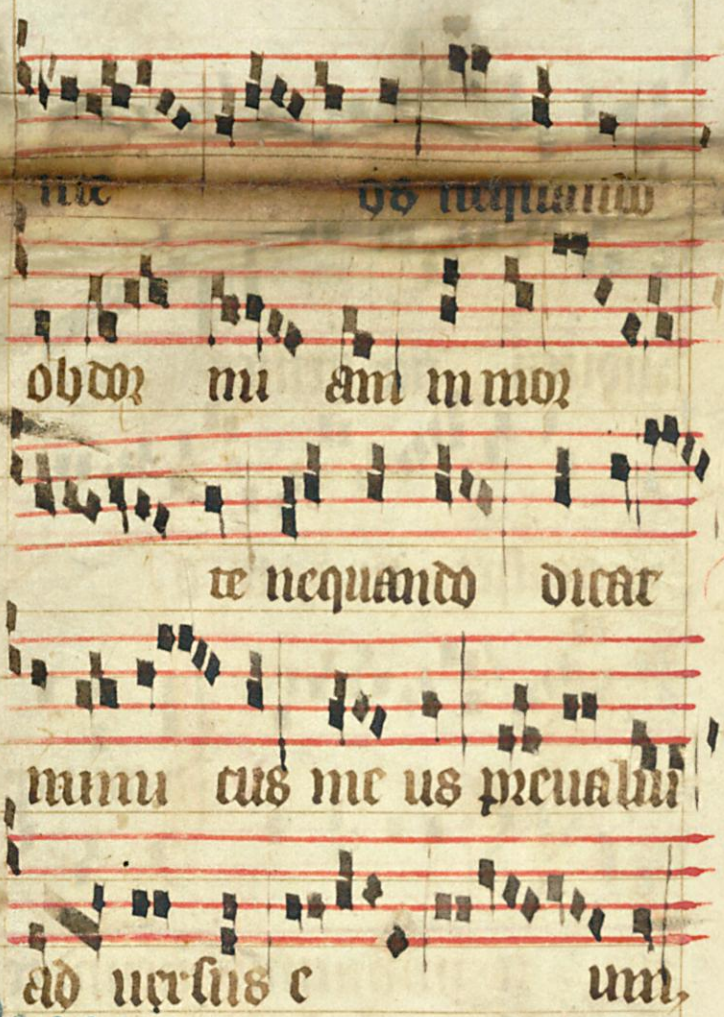 me os nequando
obdor mi am in mor
te nequando dicat
inimi cus me us preualui
ad uersus e um,